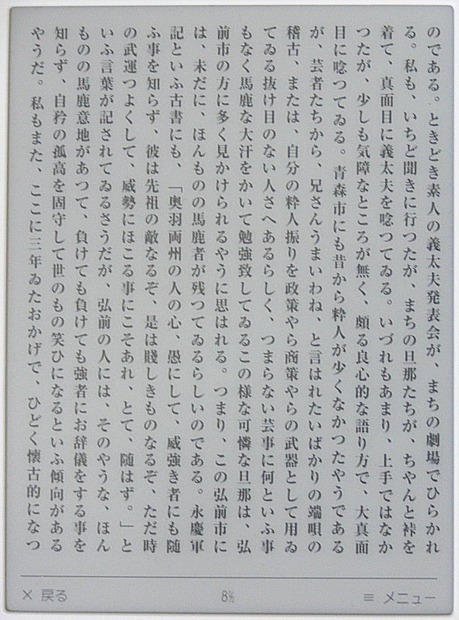 のである。ときどき素人の義太夫発表会が、まちの劇場でひらかれ
る。私も、いちど聞きに行つたが、まちの旦那たちが、ちやんと裃を
着て、真面目に義太夫を唸つてゐる。いづれもあまり、上手ではなか
つたが、少しも気障なところが無く、頗る良心的な語り方で、大真面
目に唸つてゐる。青森市にも昔から粋人が少くなかつたやうである
が、芸者たちから、兄さんうまいわね、と言はれたいばかりの端唄の
稽古、または、自分の粋人振りを政策やら商策やらの武器として用ゐ
てゐる抜け目のない人さへあるらしく、つまらない芸事に何といふ事
もなく馬鹿な大汗をかいて勉強致してゐるこの様な可憐な旦那は、弘
前市の方に多く見かけられるやうに思はれる。つまり、この弘前市に
は、未だに、ほんものの馬鹿者が残つてゐるらしいのである。永慶軍
記といふ古書にも、「奥羽両州の人の心、愚にして、威強き者にも随
ふ事を知らず、彼は先祖の敵なるぞ、是は賤しきものなるぞ、ただ時
の武運つよくして、威勢にほこる事にこそあれ、とて、随はず。」と
いふ言葉が記されてゐるさうだが、弘前の人には、そのやうな、ほん
ものの馬鹿意地があつて、負けても負けても強者にお辞儀をする事を
知らず、自矜の孤高を固守して世のもの笑ひになるといふ傾向がある
やうだ。私もまた、ここに三年ゐたおかげで、ひどく懐古的になつ
× 戻る
8%
≡ メニュー